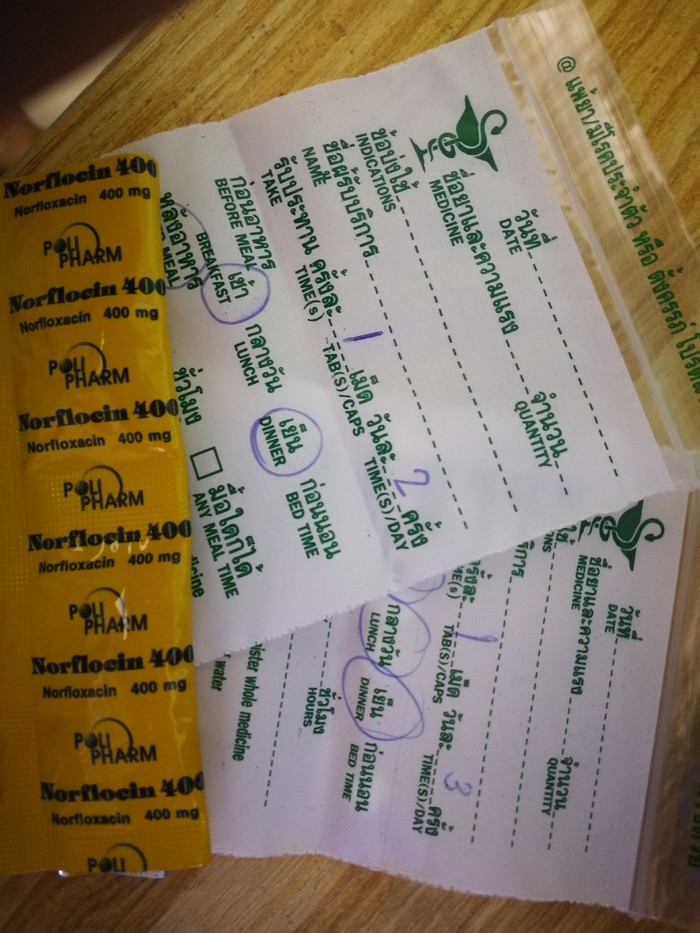 Norflocin 400
Norfloxacin 400 mg
POLI PHARM
Norflocin 400
Norfloxacin 400 mg
POLI PHARM
Norflocin 400
Norfloxacin 400 mg
POLI PHARM
Norflocin 400
Norfloxacin 400 mg
POLI PHARM
Norflocin 400
Norfloxacin 400 mg
POLI PHARM
Norflocin 400
Norfloxacin 400 mg
POLI
@ แพ้ยา/มีโรคประจำตัว หรือ ตั้งครรภ์
วันที่ จำนวน
DATE QUANTITY
ชื่อยาและความแรง
MEDICINE
ข้อบ่งใช้
INDICATIONS
ชื่อผู้รับบริการ
NAME
รับประทาน ครั้งละ 1 เม็ด วันละ 2 ครั้ง
TAKE TIME(S) TAB(S)/CAPS TIME(S)/DAY
ก่อนอาหาร เช้า กลางวัน เย็น ก่อนนอน
BEFORE MEAL BREAKFAST LUNCH DINNER BED TIME
หลังอาหาร ชั่วโมง มื้อใดก็ได้
MEAL ANY MEAL TIME
วันที่ จำนวน
DATE QUANTITY
ชื่อยาและความแรง
MEDICINE
1 เม็ด วันละ 3 ครั้ง
TAB(S)/CAPS TIME(S)/DAY
กลางวัน เย็น ก่อนนอน
LUNCH DINNER BED TIME
ชั่วโมง
HOURS
whole medicine
water